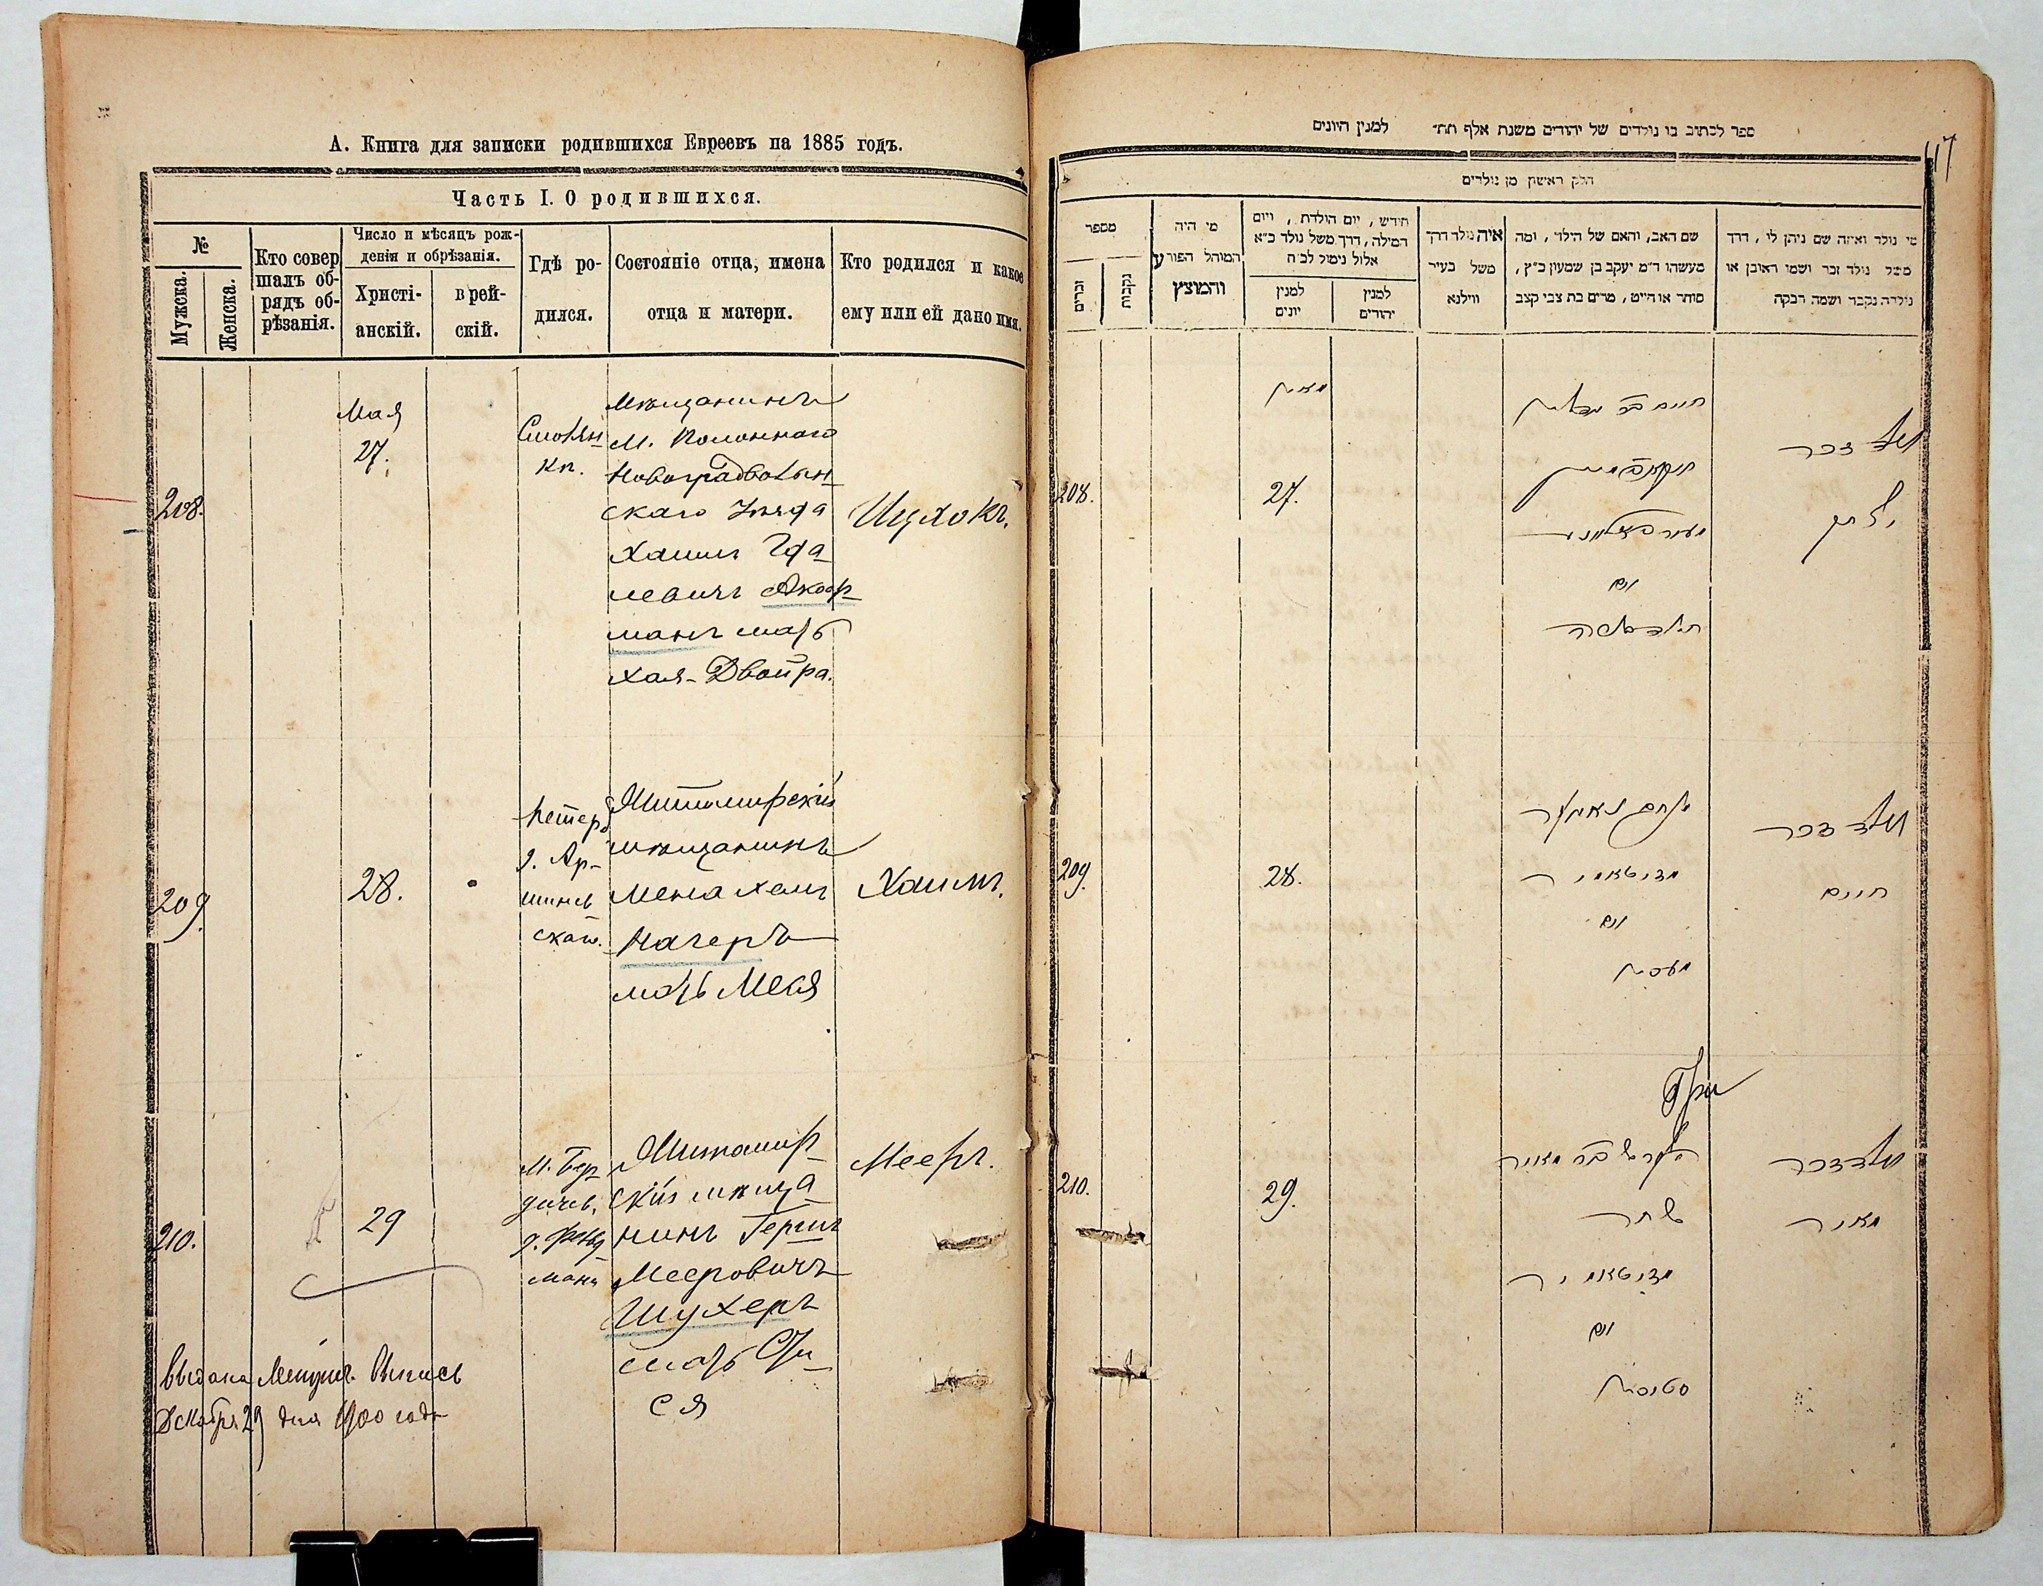 А. Книга для записки родившихся Евреевъ на 1885 годъ.
Часть I. О родившихся.
№
Мужска.
Женска.
Кто совер
шалъ об-
рядъ об-
рѣзанія.
Число и мѣсяцъ рож-
денія и обрѣзанія.
Христі-
анскій.
врей-
скій.
Гдѣ ро-
дился.
Состояніе отца, имена
отца и матери.
Кто родился и какое
ему или ей дано имя.
208.
Мая
27.
Мѣщанинъ
м. Полоннаго
Новоградволын
скаго Уѣзда
Хаимъ
левичъ
манъ мать
Хая-Двойра.
Ицхокъ.
209.
28.
г. Ар-
шинъ
скаго.
Житомирскій
мѣщанинъ
Менахемъ
Нагеръ
мать Меся
Хаимъ.
210.
29
м. Бер
дичев.
мана
Житомир
скій мѣща
нинъ Гершъ
Мееровичъ
Шухеръ
мать
ся
Мееръ.
Выдана Метрич. Выпись
Декабря 29 дня 1900 года
ספר לכתוב בו נולדים של יהודים משנת אלף תת״ למנין היונים
117
חלק ראשון מן נולדים
מספר
זכרים
נקבות
מי היה
המוהל הפורע
והמוצץ
חודש, יום הולדת, ויום
המילה, דרך משל נולד כ״א
אלול נימול לכ״ח
למנין
יונים
למנין
יהודים
איה נולד דרך
משל בעיר
ווילנא
שם האב, והאם של הילד, ומה
מעשהו ד״מ יעקב בן שמעון כ״ץ,
סוחר או חייט, מרים בת צבי קצב
מי נולד ואיזה שם ניתן לו, דרך
משל נולד זכר ושמו ראובן או
נולדה נקבה ושמה רבקה
208.
27.
ואם
נולד זכר
יצחק
209.
28.
מנחם נאגער
מזיטאמיר
ואם
מעסיא
נולד זכר
חיים
210.
29.
הערש בר מאיר
שוחר
מזיטאמיר
ואם
נולד זכר
מאיר